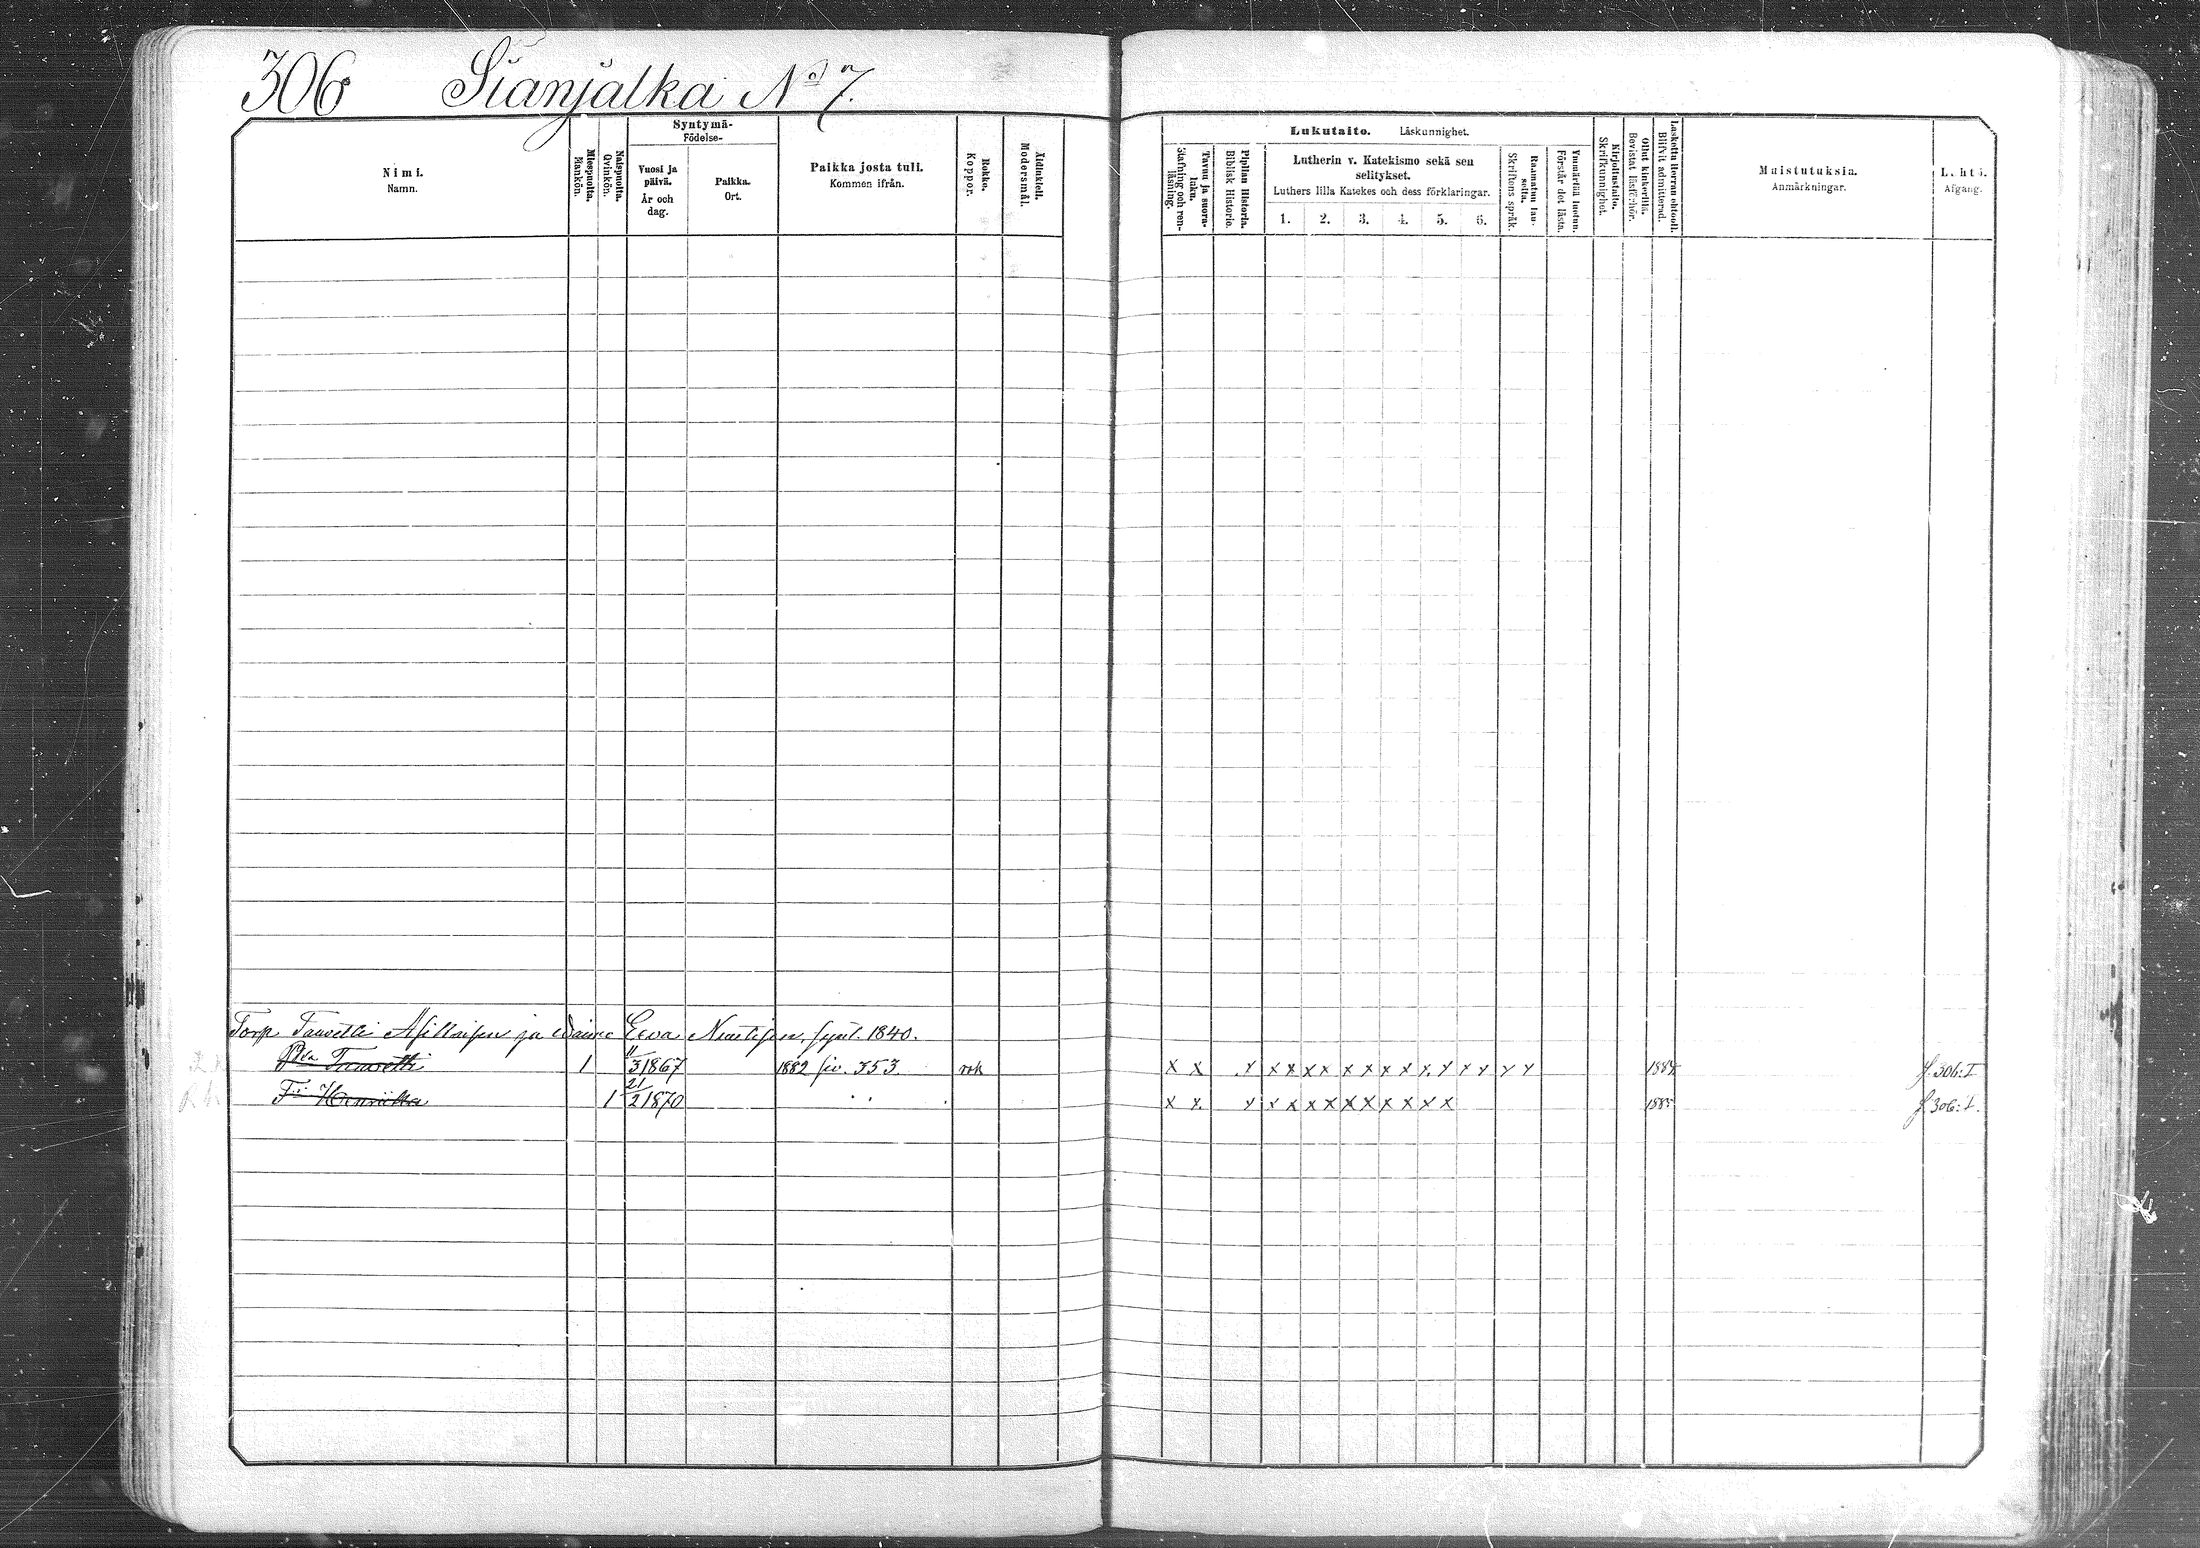 306 Sianjalka No 7.
Nimi.
Namn.
Miespuolta.
Mankön.
Naispuolta.
Qvinkön.
Syntymä-
Födelse-
Vuosi ja
päivä.
År och
dag.
Paikka.
Ort.
Paikka josta tuli.
Kommen ifrån.
Rokko.
Koppor.
Äidinkieli.
Modersmål.
Lukutaito. Läskunnighet.
Tavuu ja suora-
luku.
Stafning och ren-
läsning.
Piplian Historia.
Biblisk Historie.
Lutherin v. Katekismo sekä sen
selitykset.
Luthers lilla Katekes och dess förklaringar.
1. 2. 3. 4. 5. 6.
Raamatun lau-
seita.
Skriftens språk.
Ymmärtää luetun.
Förstår det lästa.
Kirjoitustaito.
Skrifkunnighet.
Ollut kinkerillä.
Bevistat läsförhör.
Laskettu Herran ehtooll.
Blifvit admitterad.
Muistutuksia.
Anmärkningar.
Lähtö.
Afgång.
Torp. Taavetti ja vaimo Eeva synt. 1840.
Taavetti 1 11/3 1867 1882 siv. 353 rok x x x x x x x x x x x x x x x x x 1884 s. 306:I
Henriikka 1 21/2 1870 x x x x x x x x x x x x x 1885 s. 306:I.